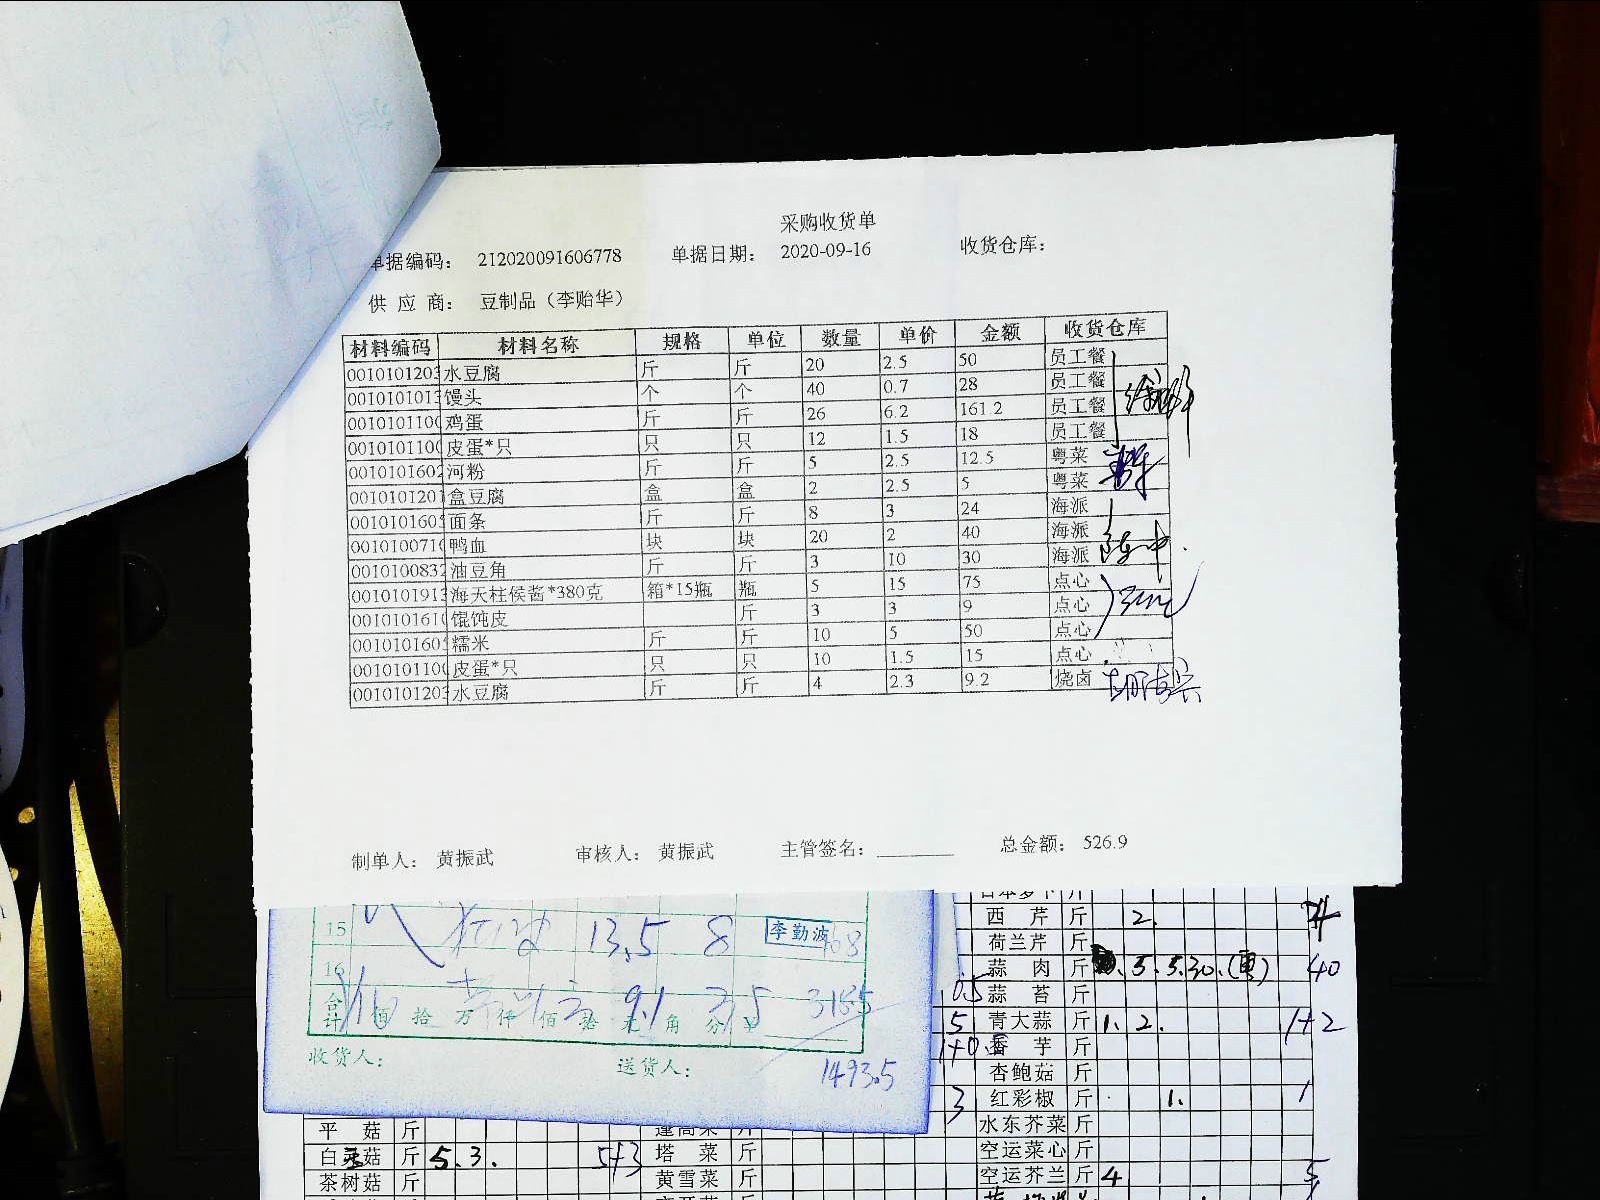 采购收货单
单据编码： 212020091606778 单据日期： 2020-09-16 收货仓库：
供 应 商： 豆制品（李贻华）
材料编码 材料名称 规格 单位 数量 单价 金额 收货仓库
0010101203 水豆腐 斤 斤 20 2.5 50 员工餐
0010101013 馒头 个 个 40 0.7 28 员工餐
001010110 鸡蛋 斤 斤 26 6.2 161.2 员工餐
001010110 皮蛋*只 只 只 12 1.5 18 员工餐
0010101602 河粉 斤 斤 5 2.5 12.5 粤菜
0010101201 盒豆腐 盒 盒 2 2.5 5 粤菜
001010160 面条 斤 斤 8 3 24 海派
001010071 鸭血 块 块 20 2 40 海派
0010100832 油豆角 斤 斤 3 10 30 海派
0010101913 海天柱侯酱*380克 箱*15瓶 瓶 5 15 75 点心
001010161 馄饨皮 斤 3 3 9 点心
001010160 糯米 斤 斤 10 5 50 点心
001010110 皮蛋*只 只 只 10 1.5 15 点心
0010101203 水豆腐 斤 斤 4 2.3 9.2 烧卤
制单人： 黄振武 审核人： 黄振武 主管签名： 总金额： 526.9
15 13.5 8 李勤波
16
合计 佰 拾 万 仟 佰 元 角 分 ¥ 9.1 318.5
收货人： 送货人： 1493.5
日本萝卜 斤
西 芹 斤 2.
荷兰芹 斤
蒜 肉 斤 5. 5.30. 40
0.5 蒜 苔 斤
5 青大蒜 斤 1. 2. 1+2
香 芋 斤
杏鲍菇 斤
3 红彩椒 斤 1. 1
水东芥菜 斤
平 菇 斤 蓬蒿菜 斤
白灵菇 斤 5.3. 5+3 塔 菜 斤 空运菜心 斤
茶树菇 斤 黄雪菜 斤 空运芥兰 斤 4 5